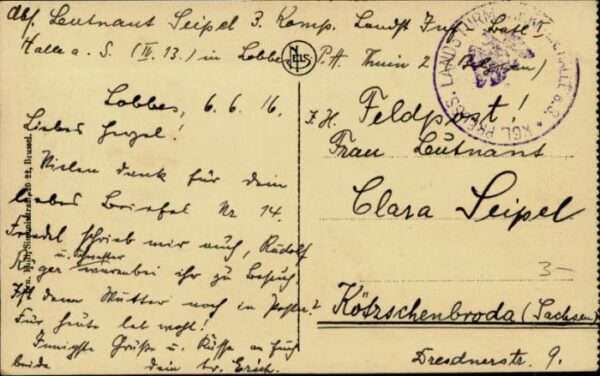 Abs. Leutnant Seipel 3. Komp. Landst. Inf. Batl.
Halle a. S. (IV. 13.) in Lobbes P.A. Thuin 2 Belgien)
Lobbes, 6. 6. 16.
Liebes
Vielen Dank für dein
liebes Briefel Nr 14.
Friedel schrieb mir auch, Rudolf
u. Schwester
Krüger waren bei ihr zu Besuch.
Ist denn Mutter noch in Posten?
Für heute leb wohl!
Innigste Grüße u. Küsse an Euch
beide dein tr. Erich.
NELS
Feldpost!
Frau Leutnant
Clara Seipel
3-
Kötzschenbroda (Sachsen)
Dresdnerstr. 9.
KGL. PREUSS. LANDSTURM HALLE a. S.